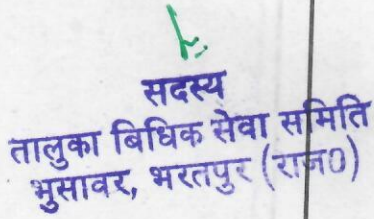 सदस्य
तालुका बिधिक सेवा समिति
भुसावर, भरतपुर (राज0)